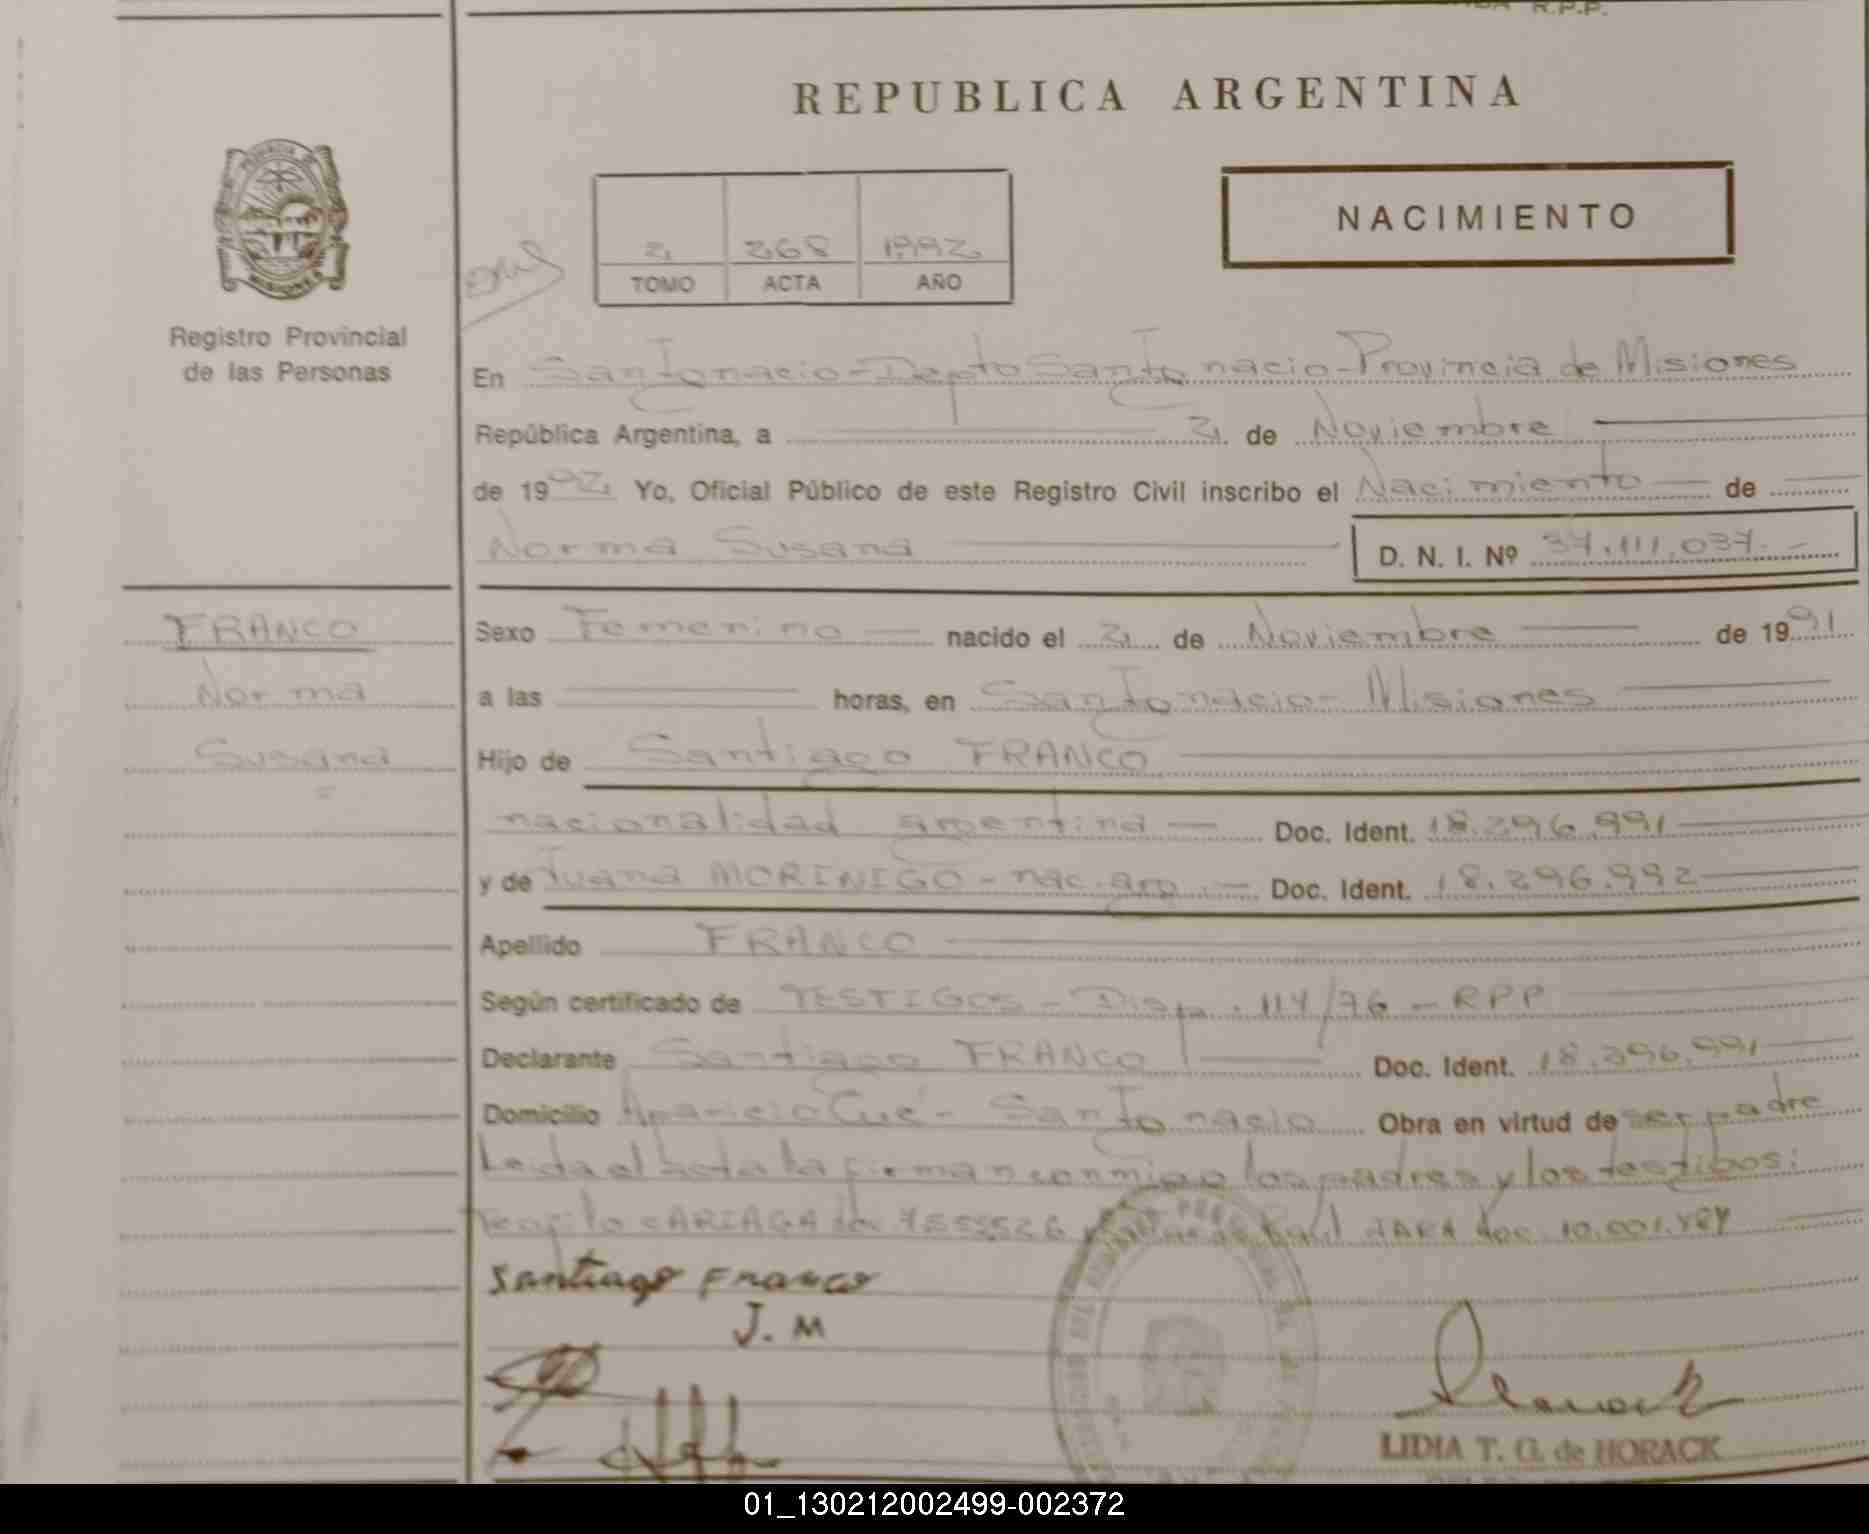 R.P.P.
REPUBLICA ARGENTINA
PROVINCIA DE
MISIONES
Registro Provincial
de las Personas
2 268 1992
TOMO ACTA AÑO
NACIMIENTO
En San Ignacio - Depto San Ignacio - Provincia de Misiones
República Argentina, a 2 de Noviembre
de 1992 Yo, Oficial Público de este Registro Civil inscribo el Nacimiento de
Norma Susana D. N. I. Nº 37.111.037.-
FRANCO
Norma
Susana
Sexo Femenino nacido el 2 de Noviembre de 1991
a las horas, en San Ignacio - Misiones
Hijo de Santiago FRANCO
nacionalidad argentina Doc. Ident. 18.296.991
y de Juana MORINIGO - nac. arg. Doc. Ident. 18.296.992
Apellido FRANCO
Según certificado de TESTIGOS - Disp. 114/76 - RPP
Declarante Santiago FRANCO Doc. Ident. 18.296.991
Domicilio Aparicio Cué - San Ignacio Obra en virtud de ser padre
Leída el acta la firman conmigo los padres y los testigos:
doc. 10.001.
Santiago Franco
J. M
LIDIA T. G. de HORACK
01_130212002499-002372